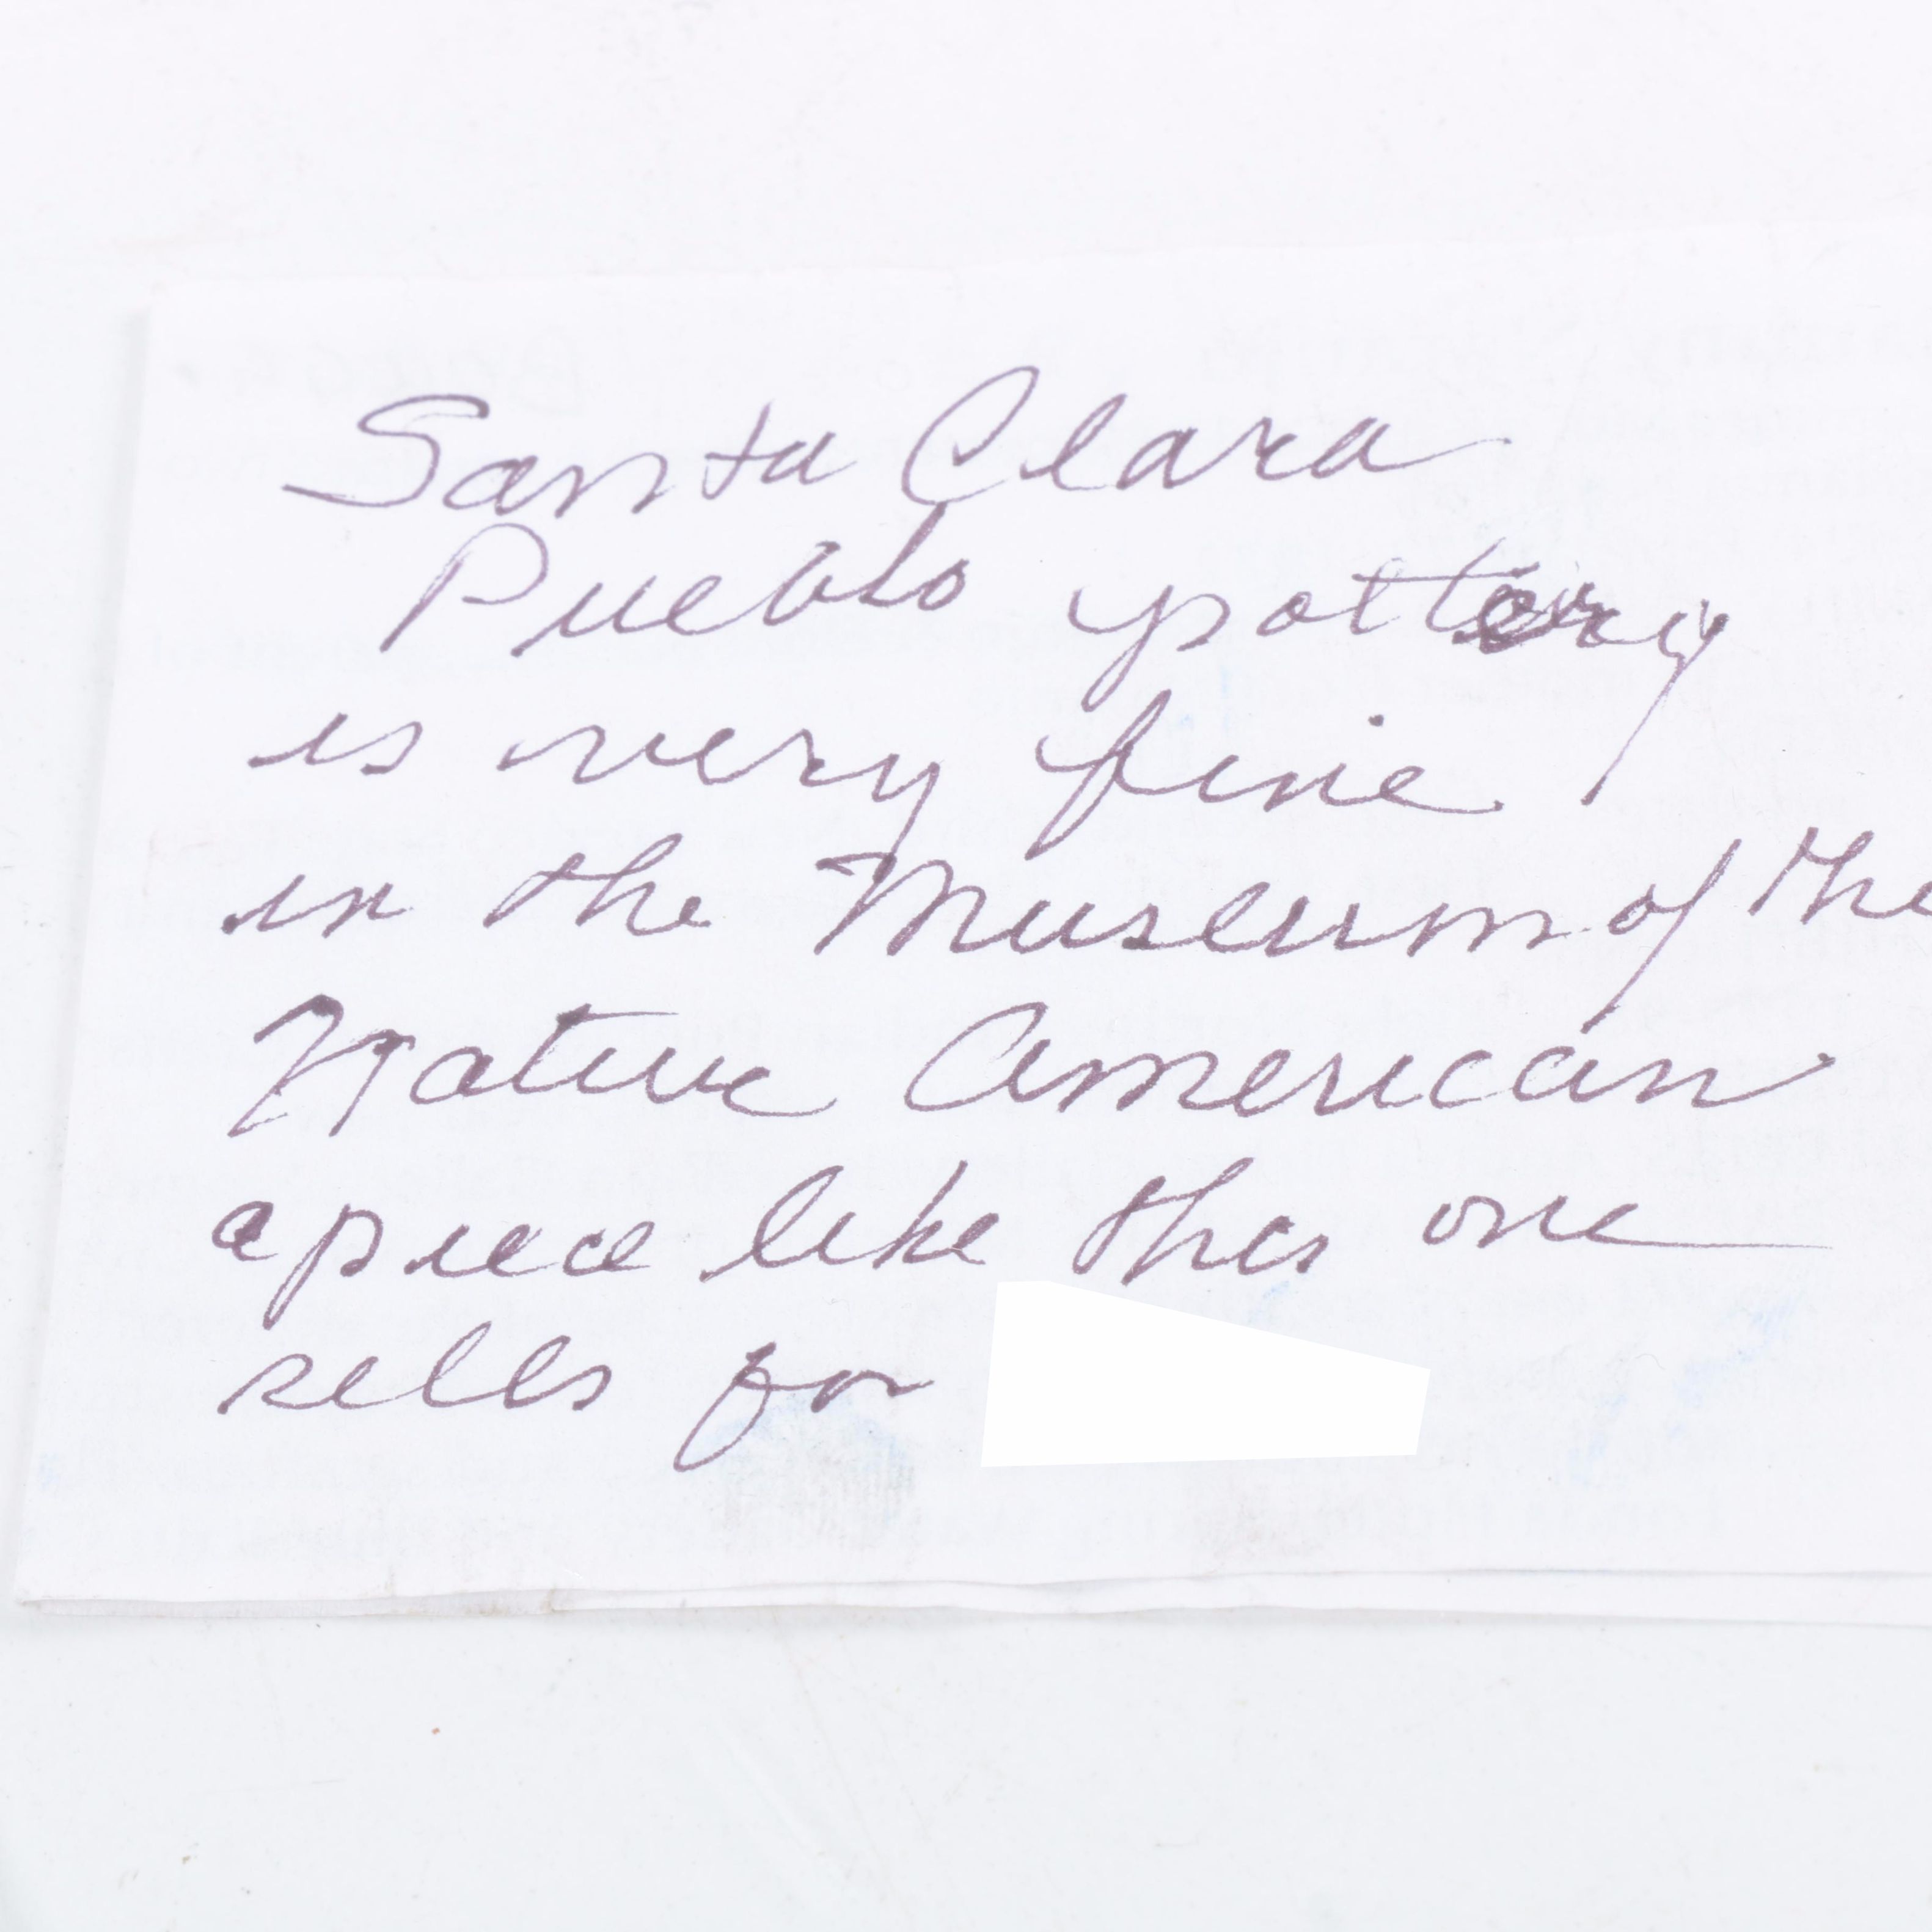 Santa Clara
Pueblo pottery
is very fine
in the Museum of the
Native American
a piece like this one
sells for